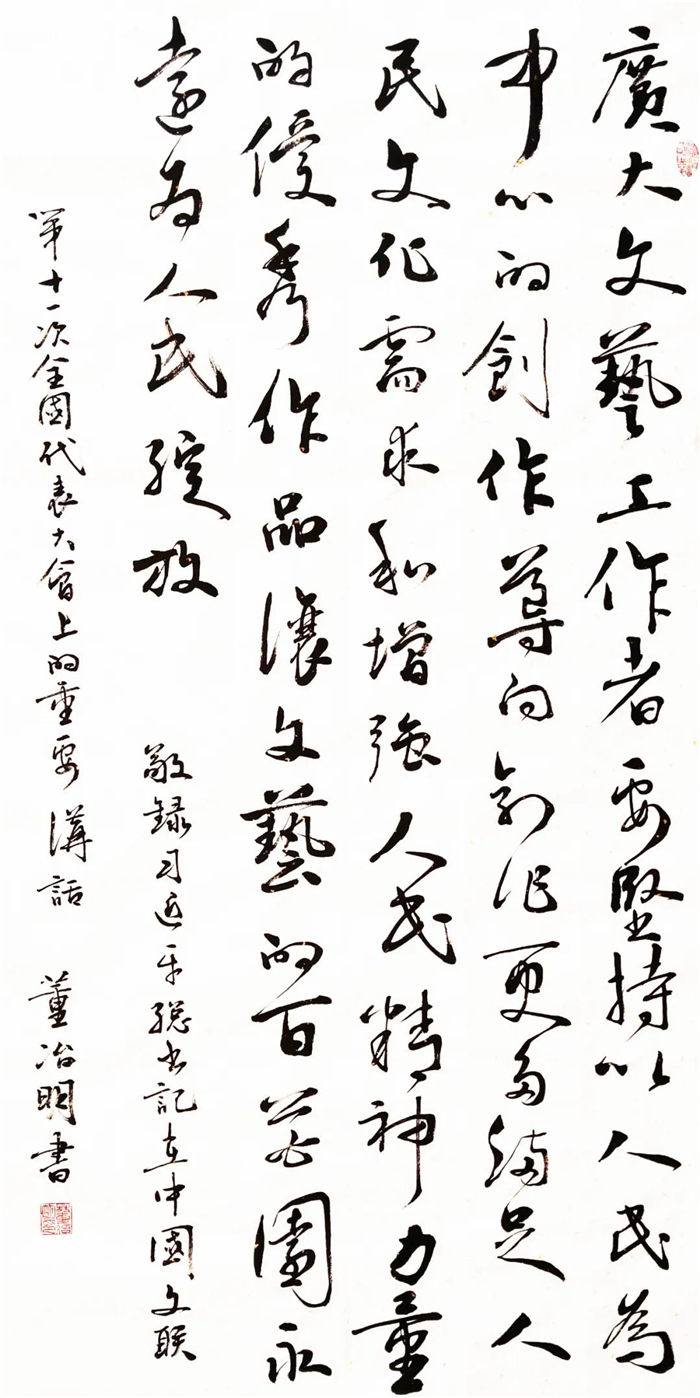 廣大文藝工作者要堅持以人民為
中心的創作導向創作更多滿足人
民文化需求和增強人民精神力量
的優秀作品讓文藝的百花園永
遠为人民綻放
敬録习近平總书記在中國文联
第十一次全國代表大會上的重要講話
董治明書